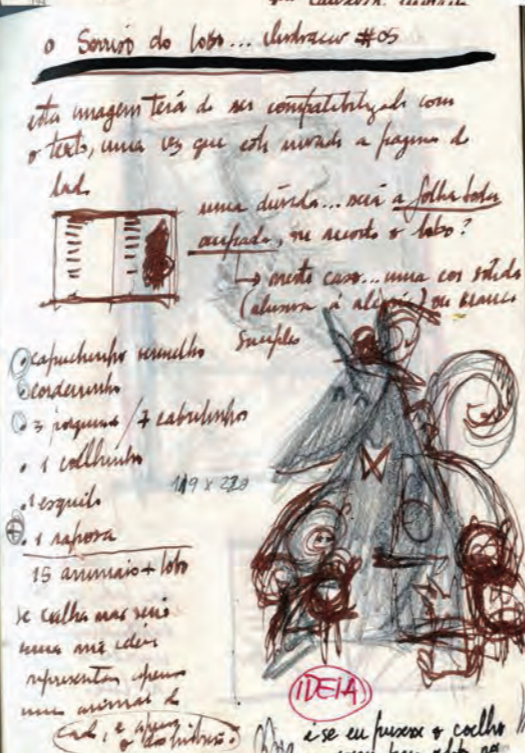 o Sorriso do lobo... ilustração #05
esta imagem terá de ser compatibilizada com
o texto, uma vez que este invade a página do
lado
uma dúvida... será a folha toda
ocupada, ou recorto o lobo?
neste caso... uma cor sólida
(alusiva à alegria) ou branco
simples
capuchinho vermelho
cordeirinho
3 porquinhos / 7 cabritinhos
1 coelhinho
149 x 220
1 esquilo
1 raposa
15 animais + lobo
se calha não seria
uma má ideia
representar apenas
um animal de
cada, e apenas
IDEIA
e se eu puxasse o coelho